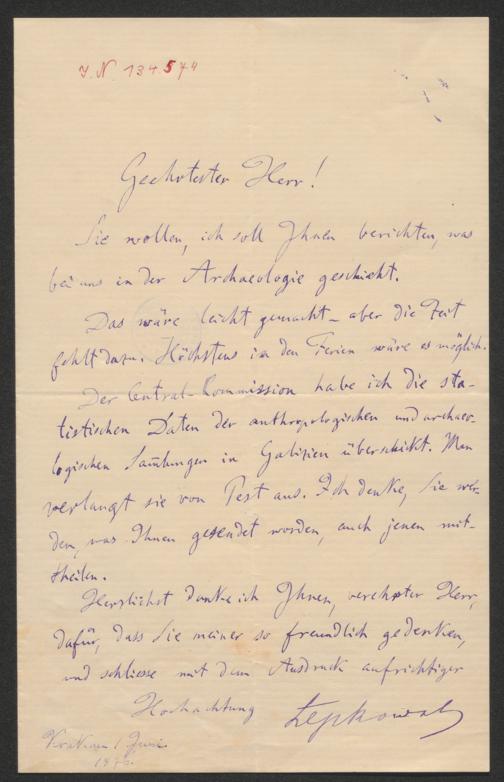 I.N. 134.574
Geehrtester Herr!
Sie wollen, ich soll Ihnen berichten, was
bei uns in der Archaeologie geschieht.
Das wäre leicht gemacht – aber die Zeit
fehlt dazu. Höchstens in den Ferien wäre es möglich.
Der Central-Kommission habe ich die sta-
tistischen Daten der anthropologischen und archaeo-
logischen Samlungen in Galizien überschickt. Man
verlangt sie von Pest aus. Ich denke, Sie wer-
den, was Ihnen gesendet worden, auch jenen mit-
theilen.
Herzlichst danke ich Ihnen, verehrter Herr,
dafür, dass Sie meiner so freundlich gedenken,
und schliesse mit dem Ausdruck aufrichtiger
Hochachtung Łepkowski
Krakau 1 Juni